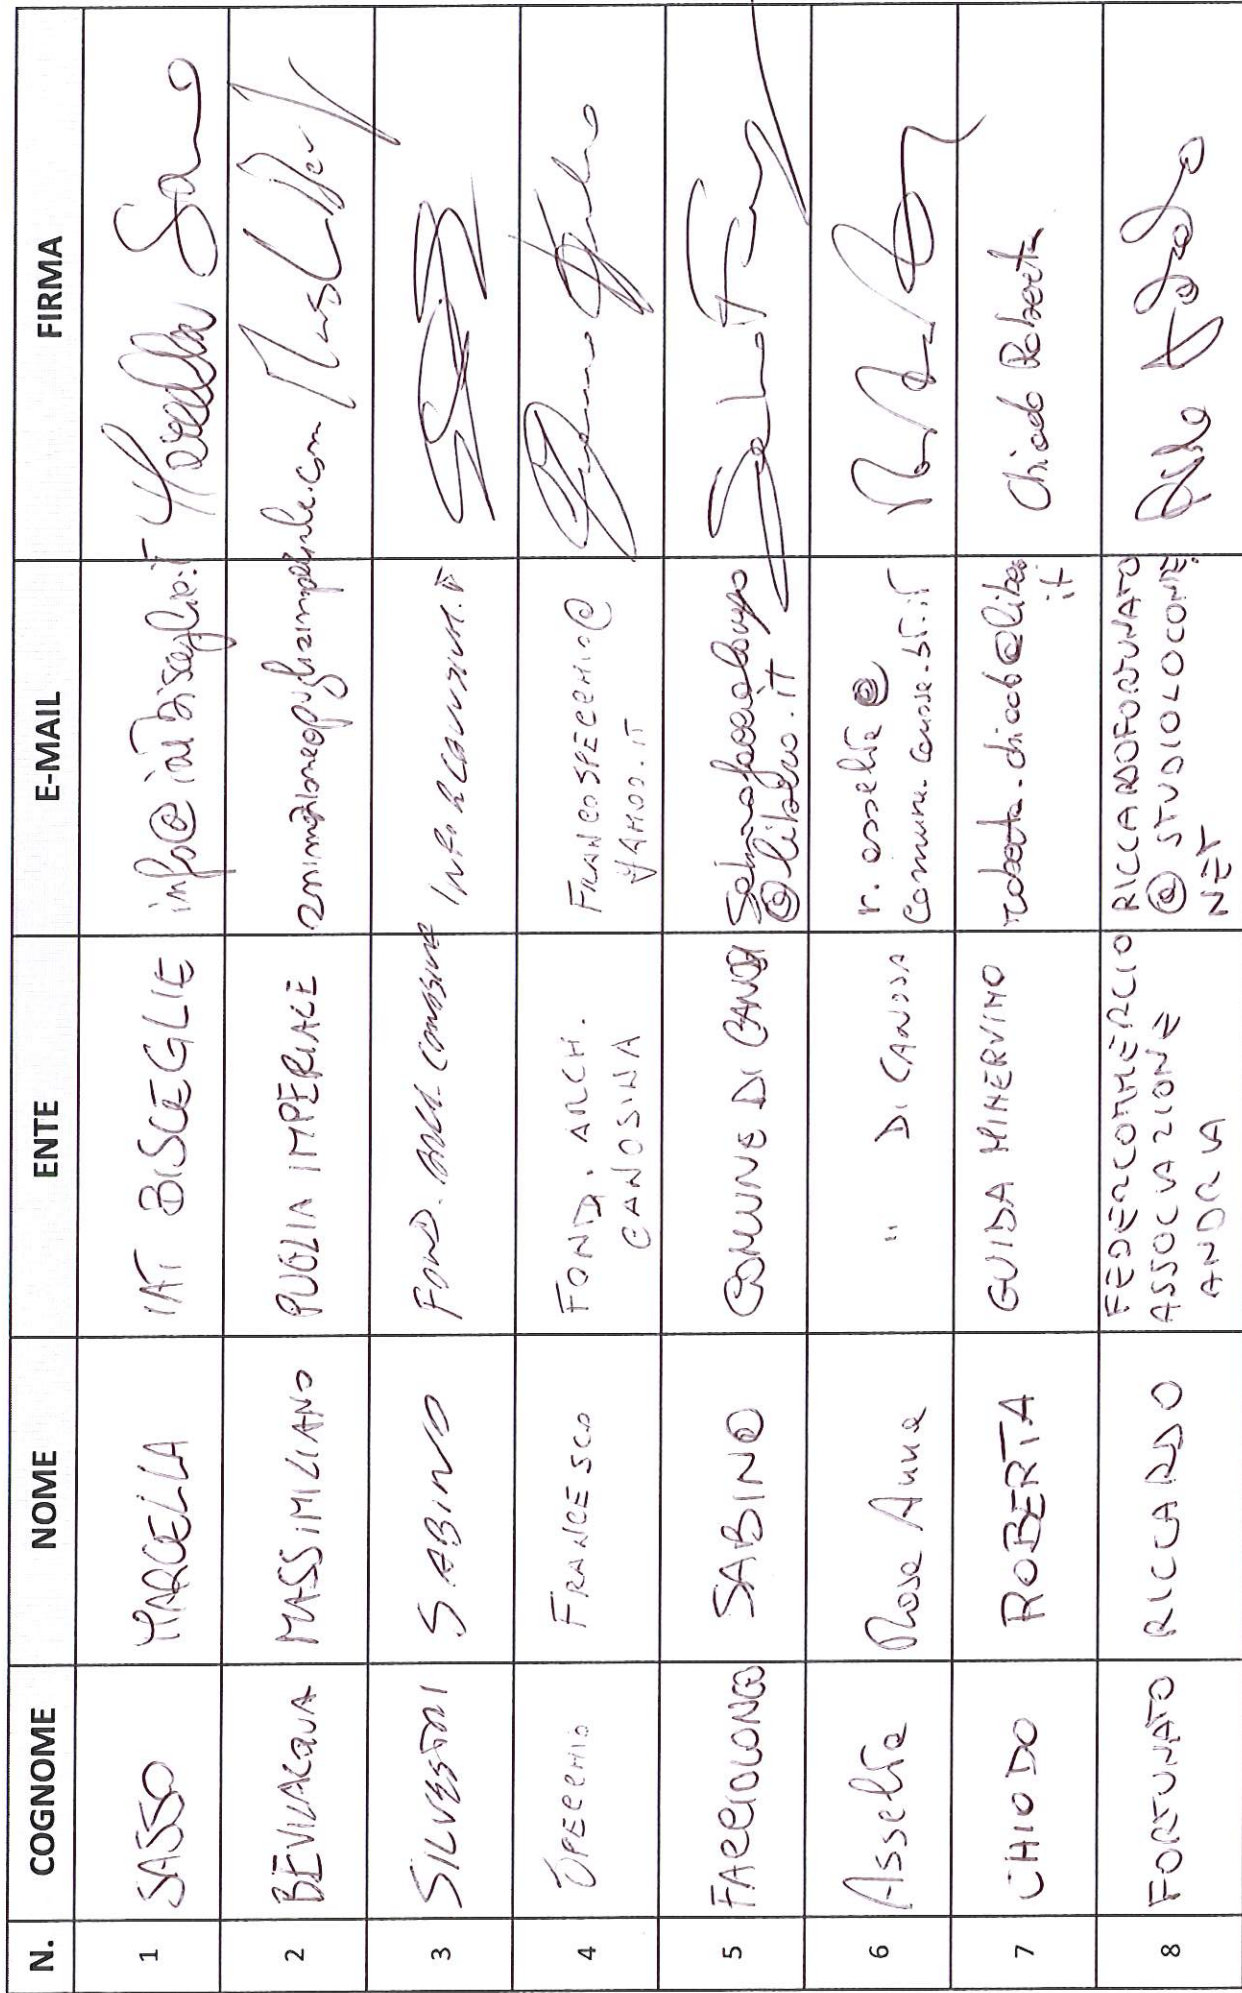 N. COGNOME NOME ENTE E-MAIL FIRMA
1 SASSO MARCELLA IAT BISCEGLIE info@iatbisceglie.it Marcella Sasso
2 BEVILACQUA MASSIMILIANO PUGLIA IMPERIALE
3 SILVESTRI SABINO FOND.
4 SPECCHIO FRANCESCO FOND. ARCH. FRANCOSPECCHIO@
CANOSINA YAHOO.IT
5 FACCIOLONGO SABINO COMUNE DI CANOSA sabinofacciolongo
@libero.it
6 Asselta Rosa Anna " DI CANOSSA r.asselta@
comune.canosa.bt.it
7 CHIODO ROBERTA GUIDA MINERVINO roberta.chiodo@libero. Chiodo Roberta
it
8 FORTUNATO RICCARDO FEDERCOMMERCIO RICCARDOFORTUNATO
ASSOCIAZIONE @STUDIOLOCONTE.
ANDRIA NET